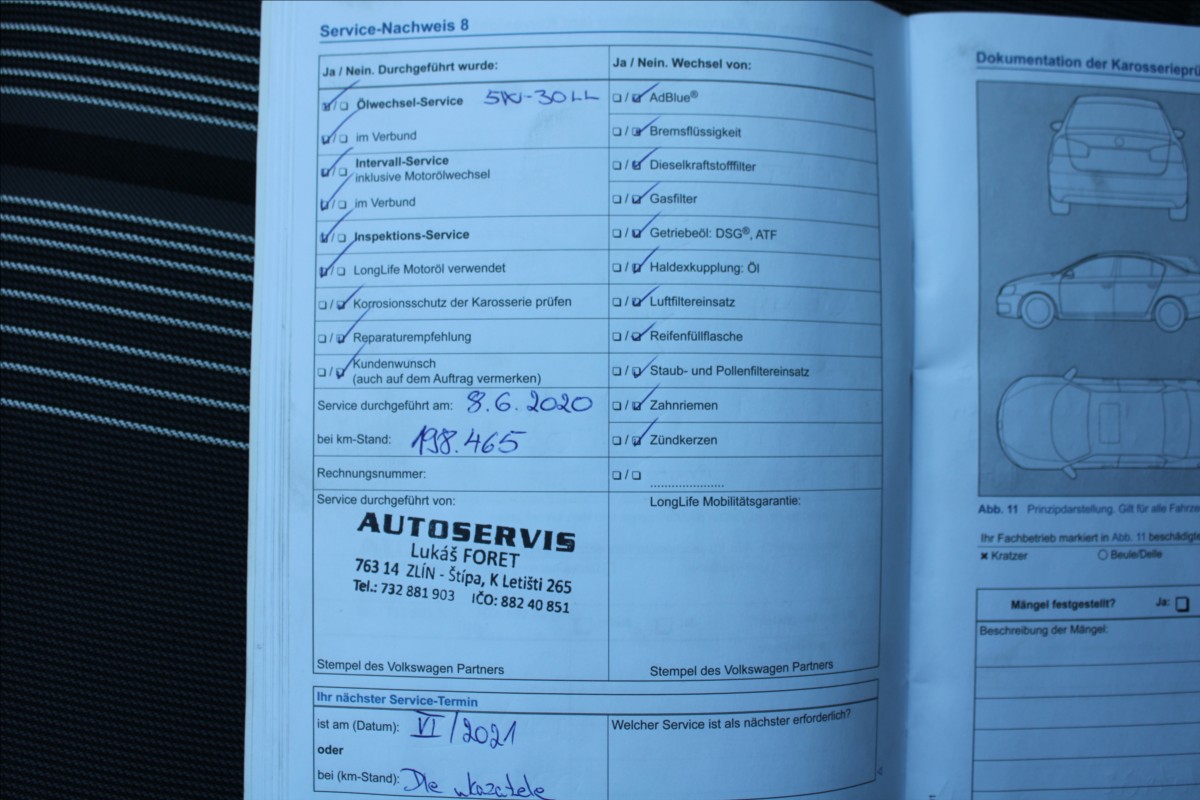 Service-Nachweis 8
Ja / Nein. Durchgeführt wurde:
Ölwechsel-Service 5W-30LL
im Verbund
Intervall-Service
inklusive Motorölwechsel
im Verbund
Inspektions-Service
LongLife Motoröl verwendet
Korrosionsschutz der Karosserie prüfen
Reparaturempfehlung
Kundenwunsch
(auch auf dem Auftrag vermerken)
Service durchgeführt am: 8.6.2020
bei km-Stand: 198.465
Rechnungsnummer:
Service durchgeführt von:
AUTOSERVIS
Lukáš FORET
763 14 ZLÍN - Štípa, K Letišti 265
Tel.: 732 881 903 IČO: 882 40 851
Stempel des Volkswagen Partners
Ja / Nein. Wechsel von:
AdBlue®
Bremsflüssigkeit
Dieselkraftstofffilter
Gasfilter
Getriebeöl: DSG®, ATF
Haldexkupplung: Öl
Luftfiltereinsatz
Reifenfüllflasche
Staub- und Pollenfiltereinsatz
Zahnriemen
Zündkerzen
LongLife Mobilitätsgarantie:
Stempel des Volkswagen Partners
Ihr nächster Service-Termin
ist am (Datum): VI/2021
oder
bei (km-Stand): Dle ukazatele
Welcher Service ist als nächster erforderlich?
Dokumentation der
Abb. 11 Prinzipdarstellung. Gilt für alle
Ihr Fachbetrieb markiert in Abb. 11
Kratzer
Beule/Delle
Mängel festgestellt? Ja:
Beschreibung der Mängel: